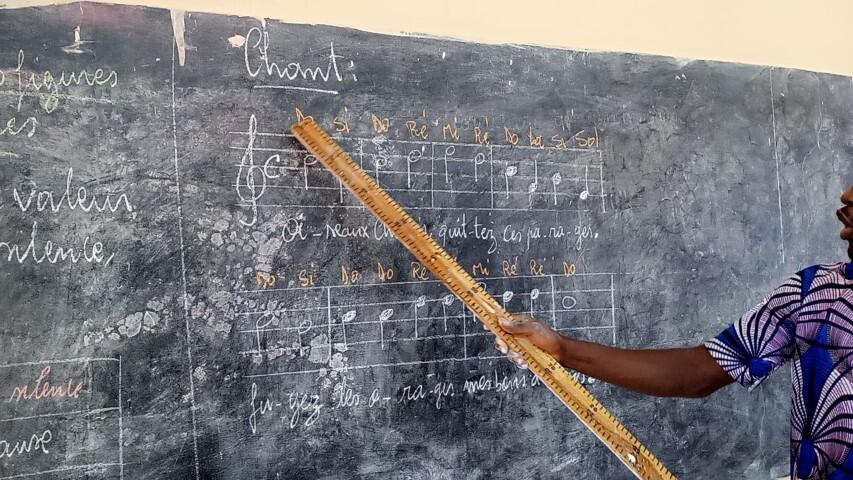 figures
es
valeur
silence
silence
ause
Chant:
Do Si Do Ré Mi Ré Do La Si Sol
C
Oi-seaux quit-tez ces pa-ra-ges.
Do Si Do Do Ré Mi Ré Ré Do
fu-yez les o-ra-ges mes